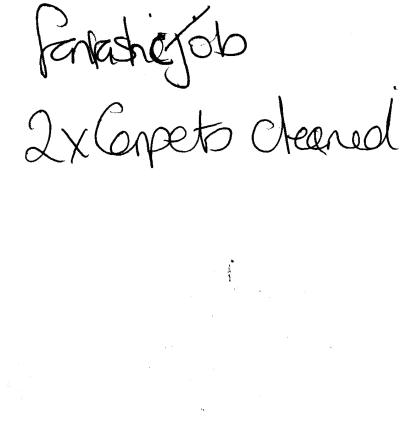 Fantastic Job
2x Carpets cleaned